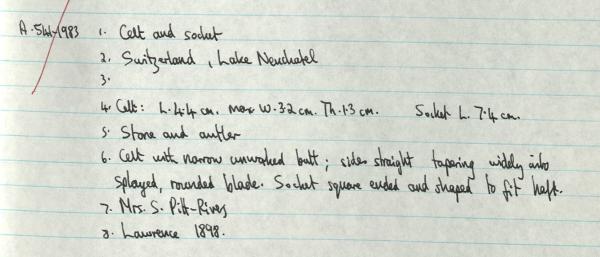 A.544.1983 1. Celt and socket
2. Switzerland, Lake Neuchatel
3.
4. Celt: L. 4.4 cm. max W. 3.2 cm. Th. 1.3 cm. Socket L. 7.4 cm.
5. Stone and antler
6. Celt with narrow unworked butt; sides straight tapering widely into
splayed, rounded blade. Socket square ended and shaped to fit haft.
7. Mrs. S. Pitt-Rivers
8. Lawrence 1898.